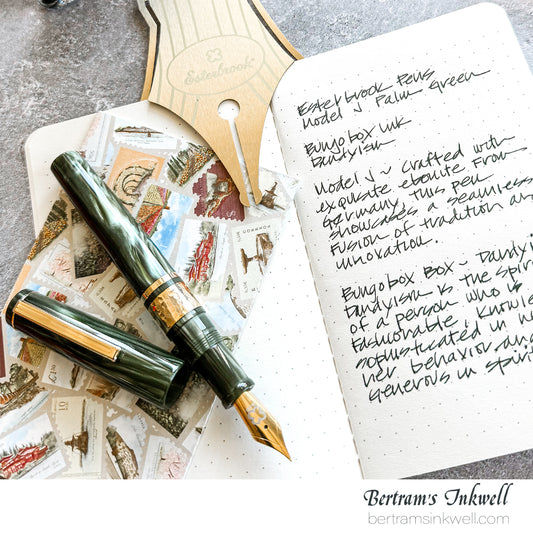 Esterbrook
Esterbrook Pens
Model J Palm Green
Bungo box ink
Dandyism
Model J ~ Crafted with
exquisite ebonite from
Germany, this pen
showcases a seamless
fusion of tradition an
innovation.
Bungo box Box ~ Dandyi
Dandyism is the spiri
of a person who is
fashionable, knowle
sophisticated in h
her behavior and
generous in spiri
Bertram's Inkwell
bertramsinkwell.com